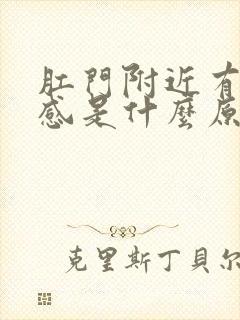 肛門附近有
感是什麼原
克里斯丁貝爾